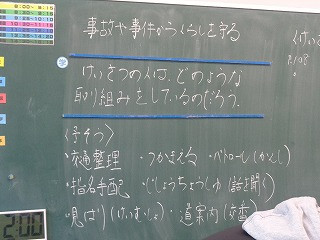 事故や事件からくらしを守る
学
けいさつの人は、どのような
取り組みをしているのだろう。
〈予そう〉
・交通整理 ・つかまえる ・パトロール(かんし)
・指名手配 ・じじょうちょうしゅ(話を聞く)
・見はり(けいむしょ) ・道案内(交番)
〈けい
2:00